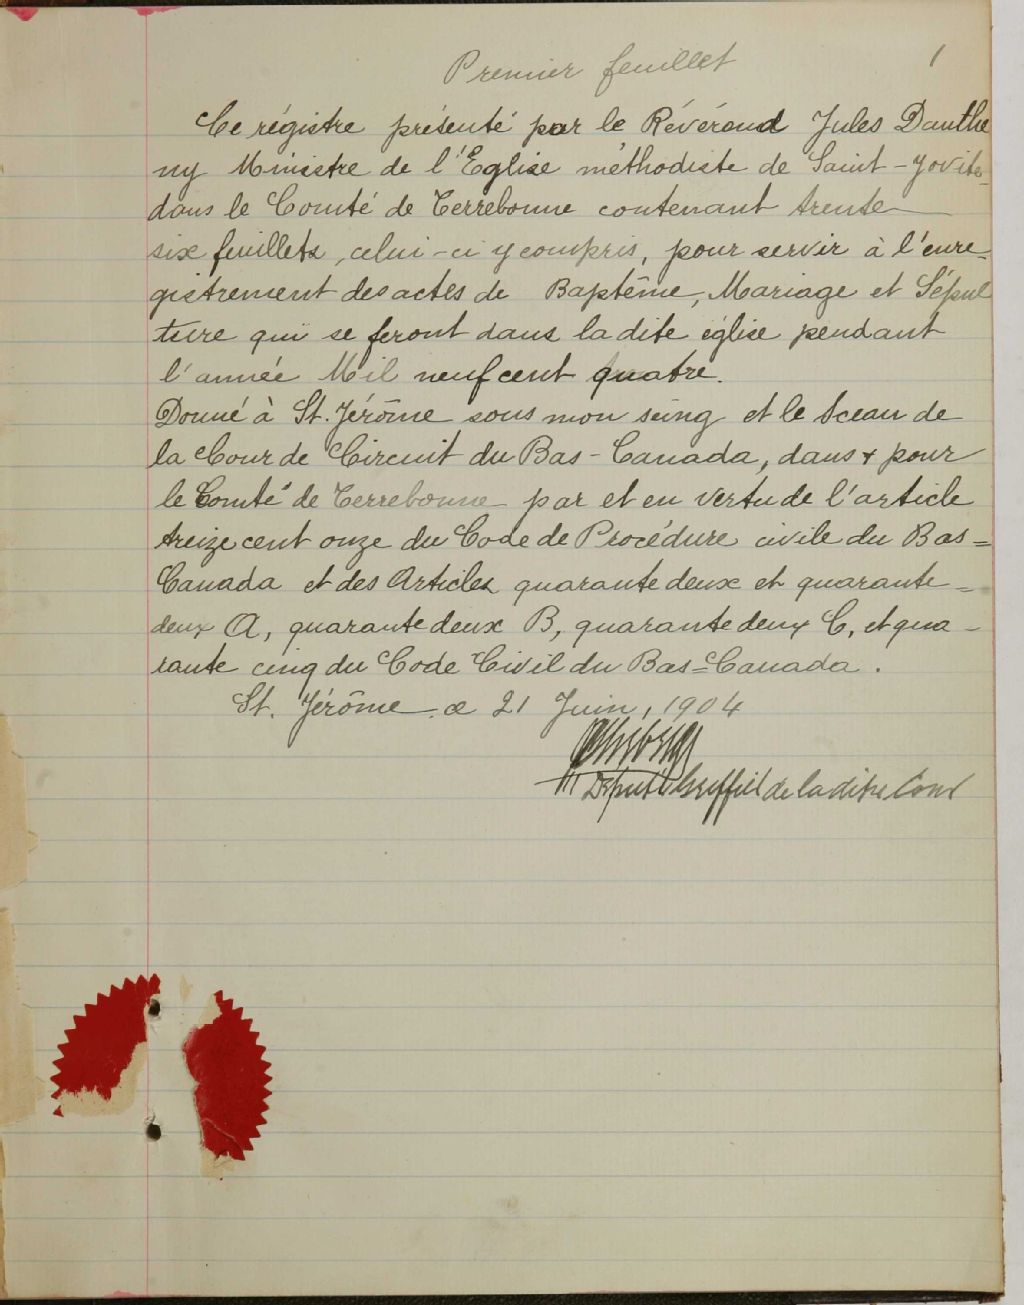 Premier feuillet
1
Ce régistre présenté par le Révérend Jules Dauthe
ny Ministre de l'Eglise méthodiste de Saint-Jovite
dans le Comté de Terrebonne contenant trente
six feuillets, celui-ci y compris, pour servir à l'enre-
gistrement des actes de Baptême, Mariage et Sépul
ture qui se feront dans ladite église pendant
l'année Mil neuf cent quatre.
Donné à St. Jérôme sous mon seing et le Sceau de
la Cour de Circuit du Bas-Canada, dans & pour
le Comté de Terrebonne par et en vertu de l'article
treize cent onze du Code de Procédure civile du Bas=
Canada et des Articles quarante deux et quarante=
deux A, quarante deux B, quarante deux C, et qua-
rante cinq du Code Civil du Bas=Canada.
St. Jérôme ce 21 Juin, 1904
Député Greffier de ladite Cour